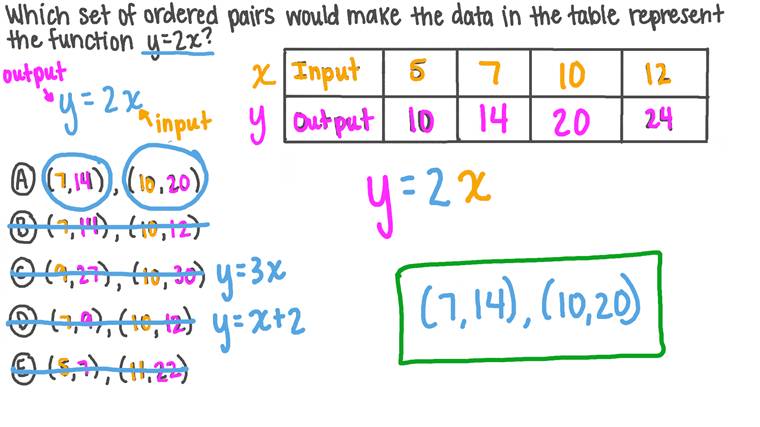 Which set of ordered pairs would make the data in the table represent
the function y=2x?
output
y=2x
input
x Input 5 7 10 12
y Output 10 14 20 24
y=2x
A (7,14), (10,20)
B (7,14), (10,12)
C (9,27), (10,30) y=3x
D (7,9), (10,12) y=x+2
E (5,7), (11,22)
(7,14), (10,20)